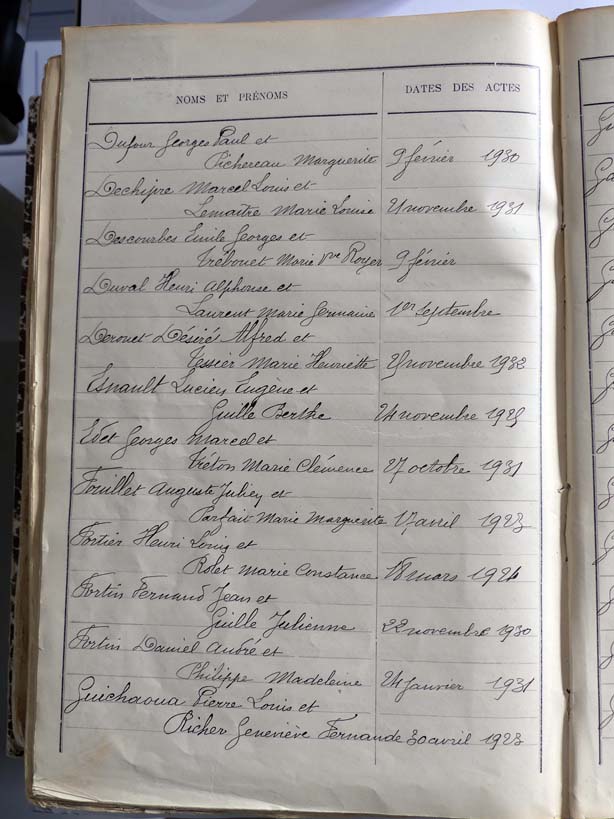 NOMS ET PRÉNOMS DATES DES ACTES
Dufour Georges Paul et
Pichereau Marguerite 9 février 1930
Dechipre Marcel Louis et
Lemaitre Marie Louise novembre 1931
Descourbes Emile Georges et
Trébouet Marie Vve Royer 9 février
Duval Henri Alphonse et
Laurent Marie Germaine 1er Septembre
Derouet Désiré Alfred et
Tessier Marie Henriette novembre 1932
Esnault Lucien Eugène et
Guille Berthe 24 novembre 1925
Edet Georges Marcel et
Tréton Marie Clémence 27 octobre 1931
Fouillet Auguste Julien et
Parfait Marie Marguerite 17 avril 1923
Fortier Henri Louis et
Rolet Marie Constance 18 mars 1924
Fortin Fernand Jean et
Guille Julienne 22 novembre 1930
Fortin Daniel André et
Philippe Madeleine 24 Janvier 1931
Guichaoua Pierre Louis et
Richer Geneviève Fernande 30 avril 1923